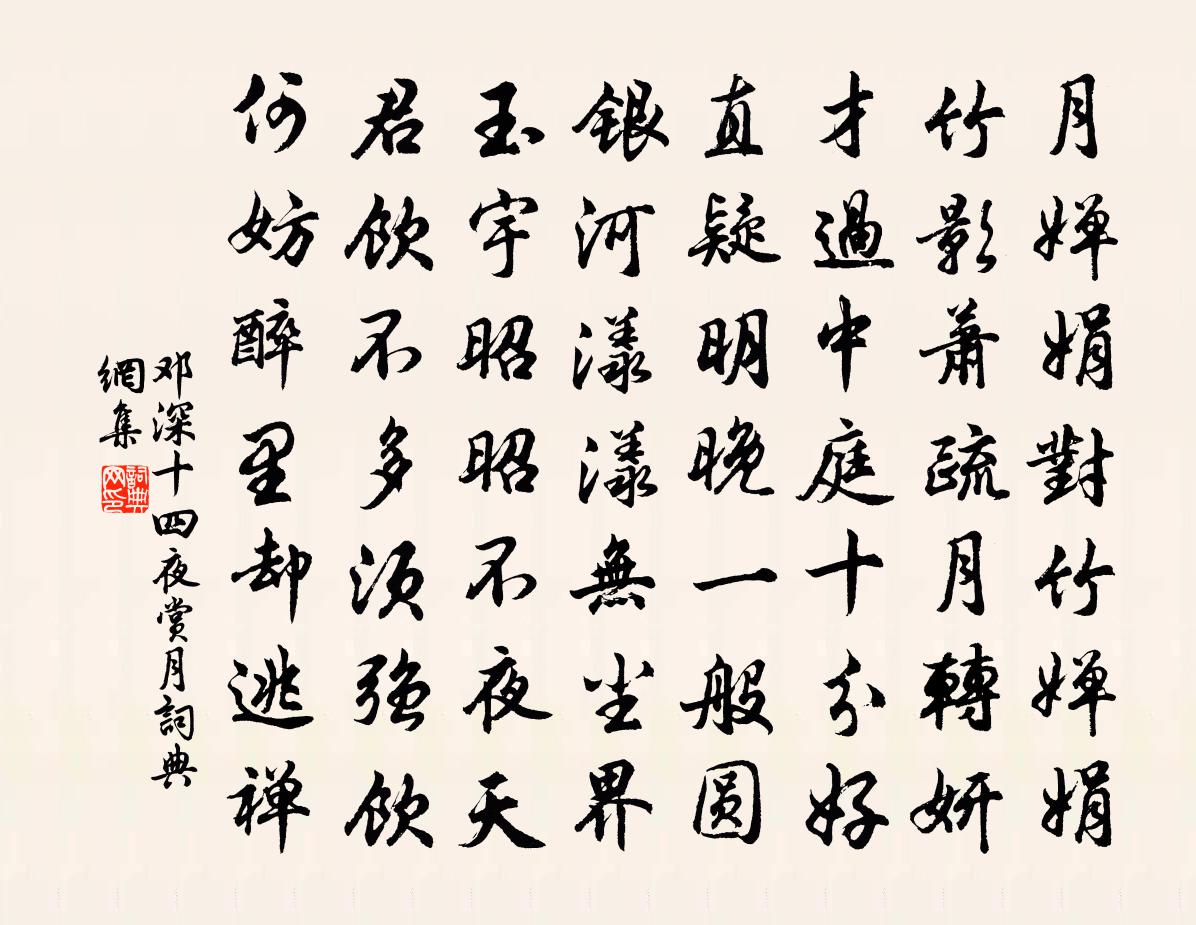 月嬋娟對竹嬋娟
竹影蕭疏月轉妍
才過中庭十分好
直疑明晚一般圓
銀河漾漾無尘界
玉宇昭昭不夜天
君飲不多須強飲
何妨醉里却逃禅
邓深十四夜赏月詞典
網集
詞典
网印